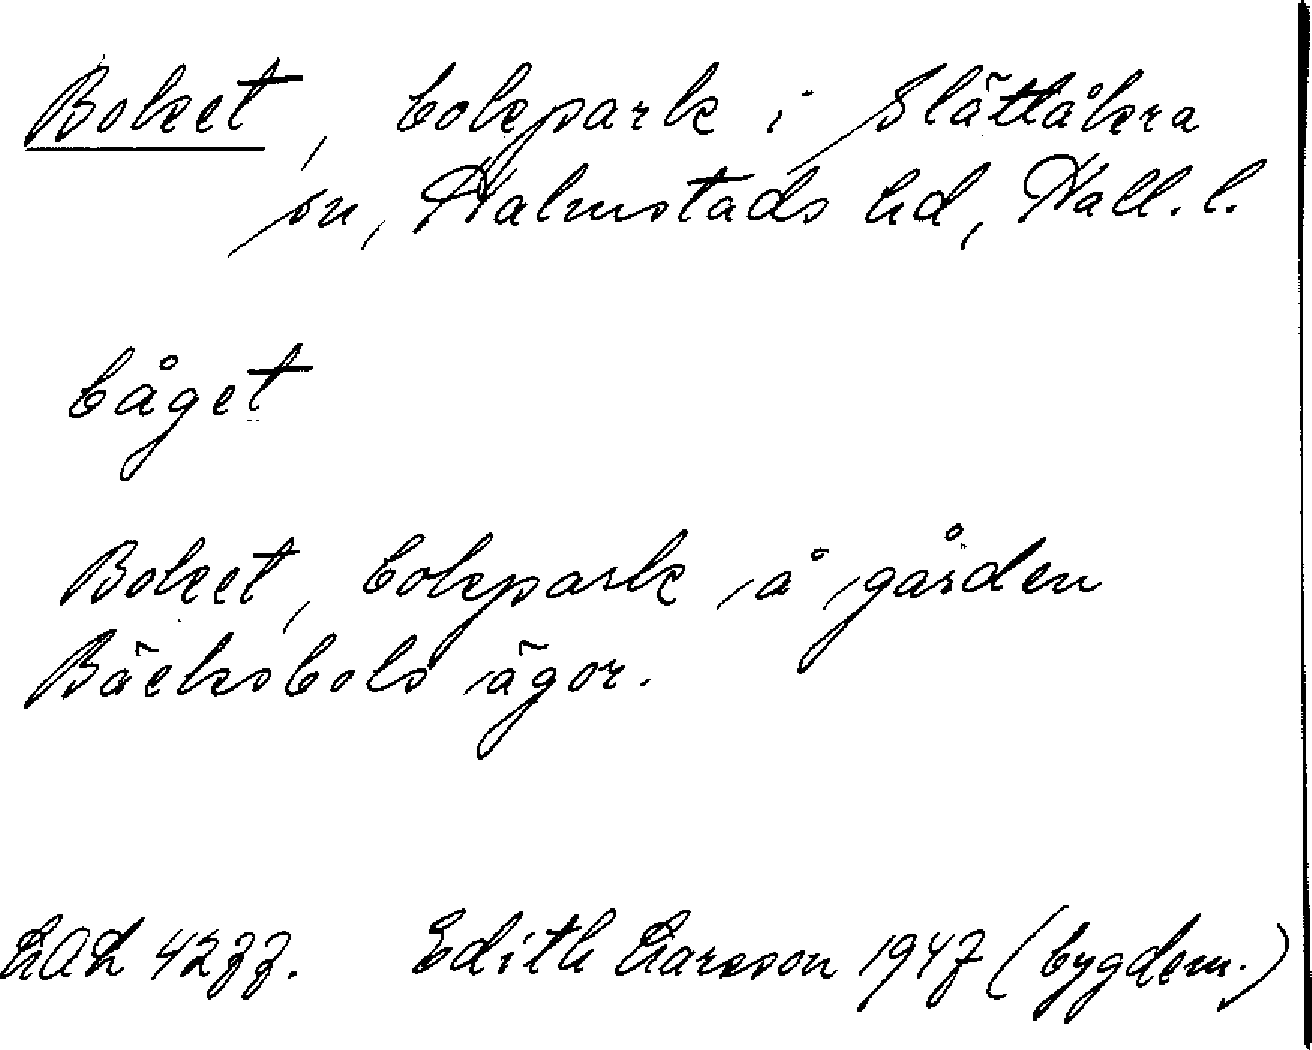 Boket, bokpark i Slättåkra
sn, Halmstads hd, Hall. l.
båget
Boket, bokpark å gården
Bäcksbols ägor.
LAL 4277. Edith Larsson 1947 (bygdem.)